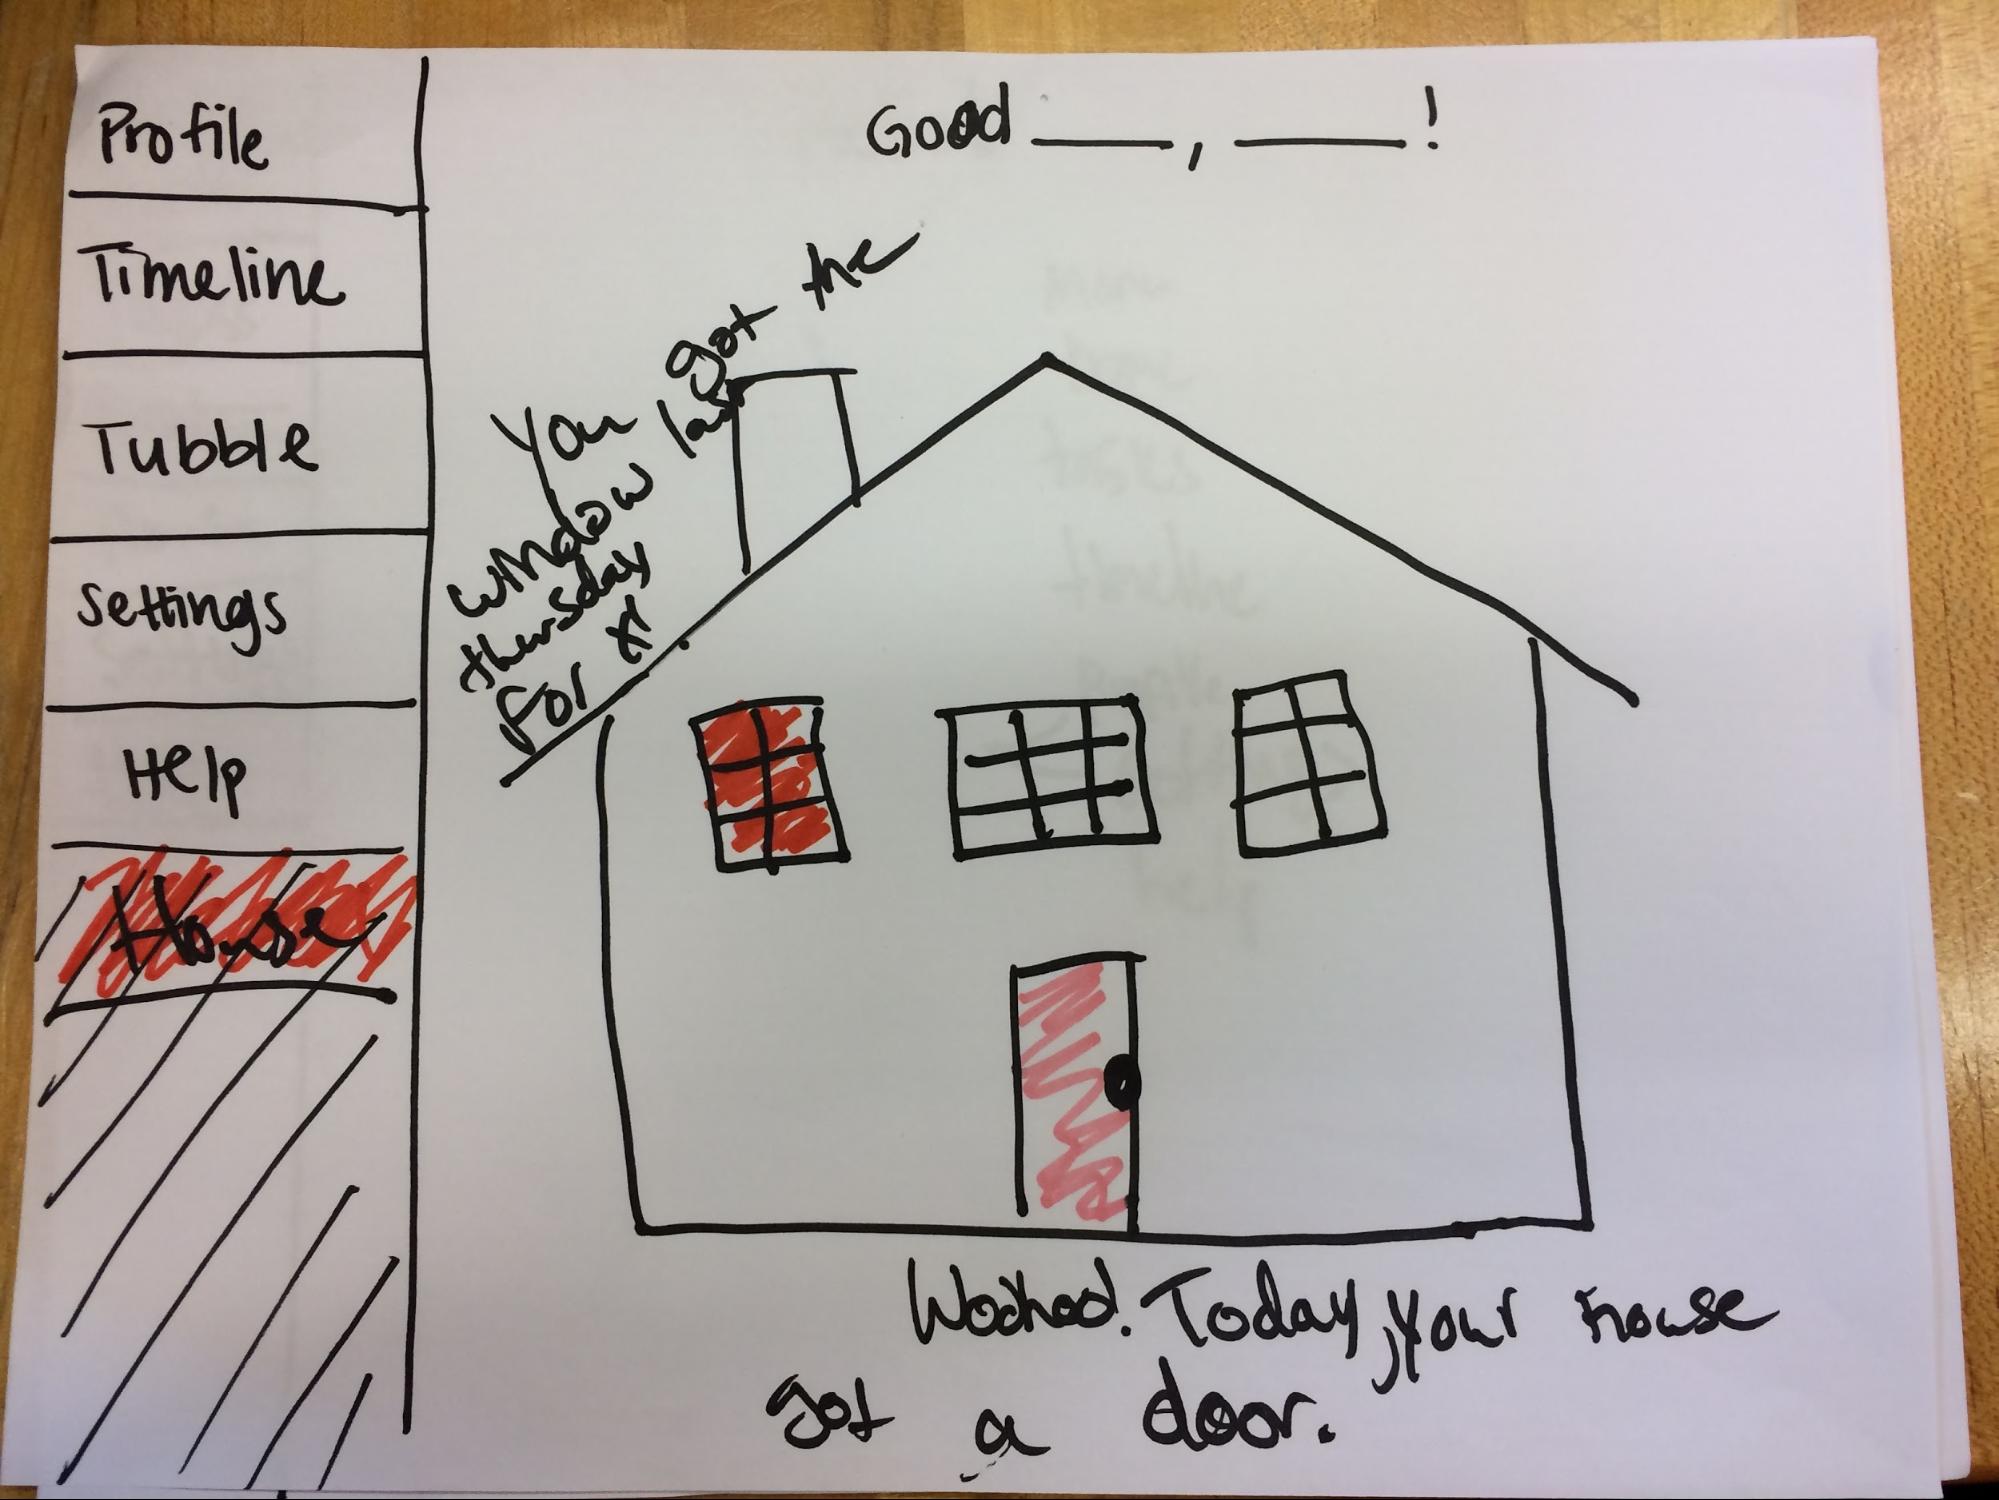 Profile
Timeline
Tubble
Settings
Help
House
Good ____, ____!
You got the
window last
thursday
for x!
Woohoo! Today, your house
got a door.